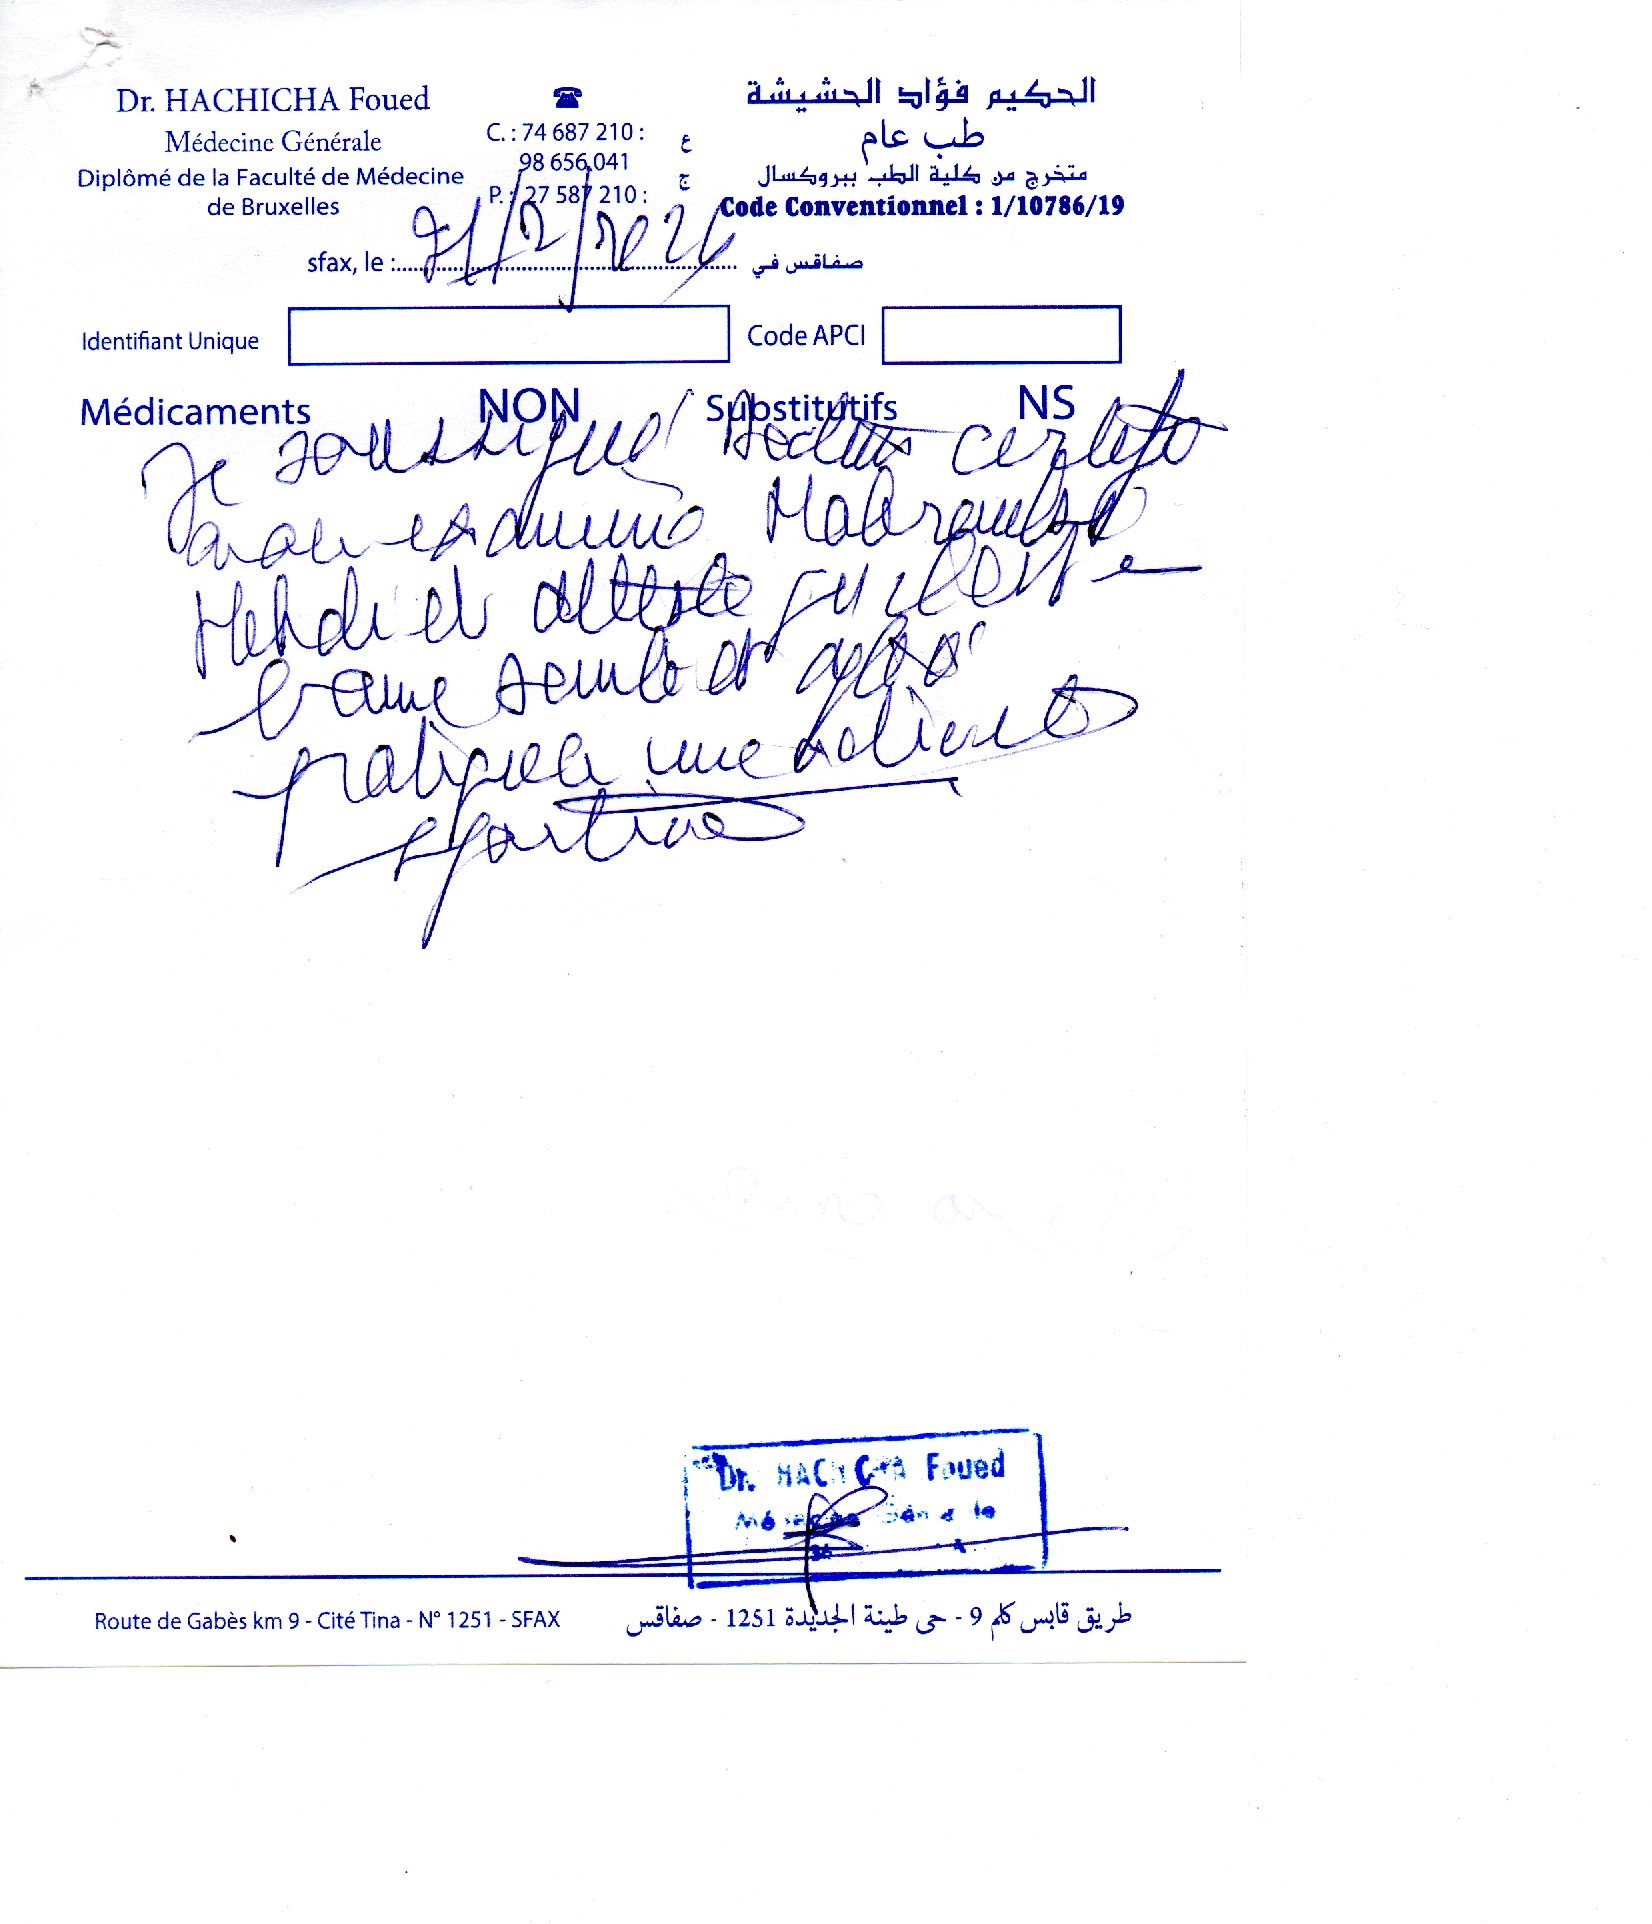 Dr. HACHICHA Foued
Médecine Générale
Diplômé de la Faculté de Médecine
de Bruxelles
☎
C. : 74 687 210 : ع
98 656 041
P. : 27 587 210 : ج
الحكيم فؤاد الحشيشة
طب عام
متخرج من كلية الطب ببروكسال
Code Conventionnel : 1/10786/19
sfax, le : 21/2/2026 صفاقس في
Identifiant Unique Code APCI
Médicaments NON Substitutifs NS
Je soussigné Docteur certifie
avoir examiné Mabrouk
Mehdi et atteste qu'il est en
bonne santé et apte à
pratiquer une activité
sportive
Dr. HACHICHA Foued
Médecine Générale
Route de Gabès km 9 - Cité Tina - N° 1251 - SFAX
طريق قابس كلم 9 - حي طينة الجديدة 1251 - صفاقس